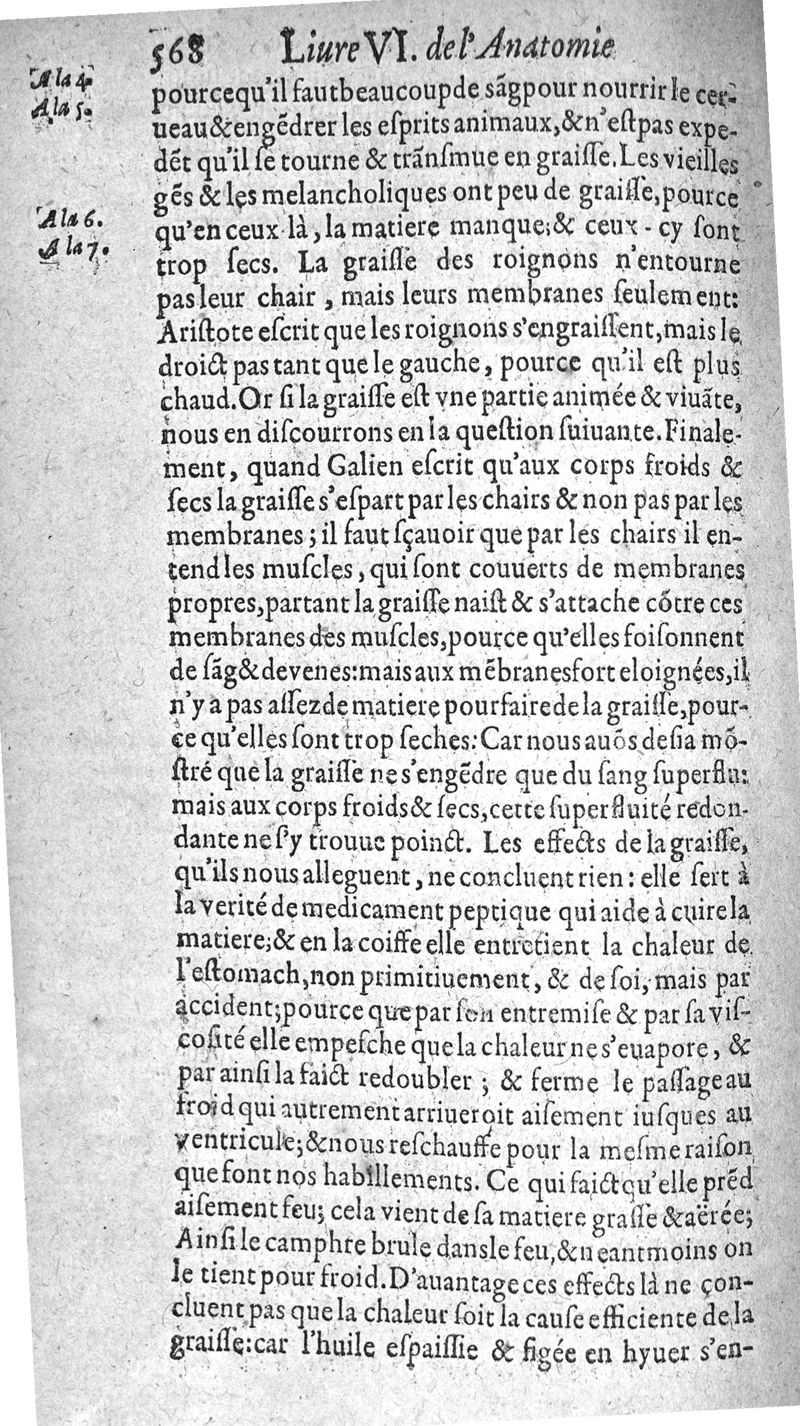 568 Liure VI. de l'Anatomie
A la 4.
A la 5.
pourcequ'il faut beaucoup de sãg pour nourrir le cer-
ueau & engẽdrer les eſprits animaux, & n'eſt pas expe-
dẽt qu'il ſe tourne & trãnſmue en graiſſe. Les vieilles
gẽs & les melancholiques ont peu de graiſſe, pource
A la 6.
qu'en ceux là, la matiere manque; & ceux-cy ſont
A la 7.
trop ſecs. La graiſſe des roignons n'entourne
pas leur chair, mais leurs membranes ſeulement:
Ariſtote eſcrit que les roignons s'engraiſſent, mais le
droict pas tant que le gauche, pource qu'il eſt plus
chaud. Or ſi la graiſſe eſt vne partie animée & viuãte,
nous en diſcourrons en la queſtion ſuiuante. Finale-
ment, quand Galien eſcrit qu'aux corps froids &
ſecs la graiſſe s'eſpart par les chairs & non pas par les
membranes; il faut ſçauoir que par les chairs il en-
tend les muſcles, qui ſont couuerts de membranes
propres, partant la graiſſe naiſt & s'attache cõtre ces
membranes des muſcles, pource qu'elles foiſonnent
de ſãg & de venes: mais aux mẽbranes fort eloignées, il
n'y a pas aſſez de matiere pour faire de la graiſſe, pour-
ce qu'elles ſont trop ſeches: Car nous auõs deſia mõ-
ſtré que la graiſſe ne s'engẽdre que du ſang ſuperflu:
mais aux corps froids & ſecs, cette ſuperfluité redon-
dante ne ſ'y trouue poinct. Les effects de la graiſſe,
qu'ils nous alleguent, ne concluent rien: elle ſert à
la verité de medicament peptique qui aide à cuire la
matiere; & en la coiffe elle entretient la chaleur de
l'eſtomach, non primitiuement, & de ſoi, mais par
accident; pource que par ſon entremiſe & par ſa viſ-
coſité elle empeſche que la chaleur ne s'euapore, &
par ainſi la faict redoubler; & ferme le paſſage au
froid qui autrement arriueroit aiſement iuſques au
ventricule; & nous reſchauffe pour la meſme raiſon
que font nos habillements. Ce qui faict qu'elle prẽd
aiſement feu; cela vient de ſa matiere graſſe & aërée;
Ainſi le camphre brule dans le feu, & neantmoins on
le tient pour froid. D'auantage ces effects là ne con-
cluent pas que la chaleur ſoit la cauſe efficiente de la
graiſſe: car l'huile eſpaiſſie & figée en hyuer s'en-